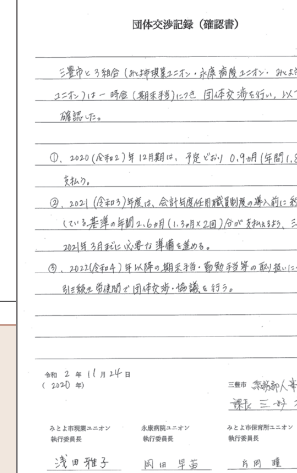 団体交渉記録（確認書）
三豊市と3組合（みとよ市現業ユニオン・永康病院ユニオン・みとよ
ユニオン）は一時金（期末手当）につき団体交渉を行い、以下
確認した。
①、2020（令和2）年12月期は、予定どおり0.9ヵ月（年間1.8
支払う。
②、2021（令和3）年度は、会計年度任用職員制度の導入前に
している基準の年間2.6ヵ月（1.3ヵ月×2回）分が支払えるよう、三
2021年3月までに必要な準備を進める。
③、2022（令和4）年以降の期末手当・勤勉手当等の取り扱いに
引き続き労使間で団体交渉・協議を行う。
令和 2 年 11 月 24 日
（ 2020 年）
三豊市 総務部人事
課長 三好
みとよ市現業ユニオン 永康病院ユニオン みとよ市保育所ユニオン
執行委員長 執行委員長 執行委員長
浅田雅子 岡田早苗 片岡